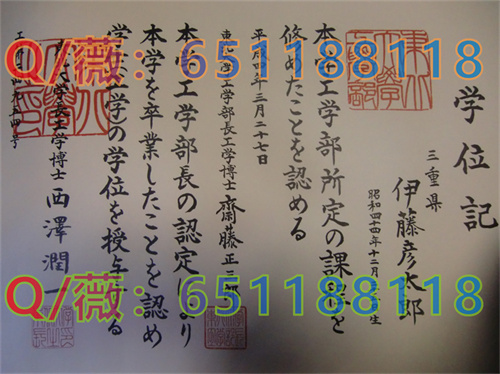 学位記
三重県
伊藤彦太郎
昭和四十四年十二月 生
本学工学部所定の課程を
修めたことを認める
平成四年三月二十七日
東北大学工学部長工学博士 齋藤正三郎
本学工学部長の認定により
本学を卒業したことを認め
学士 工学の学位を授与する
大学長工学博士 西澤潤一
Q/薇：651188118
Q/薇：651188118